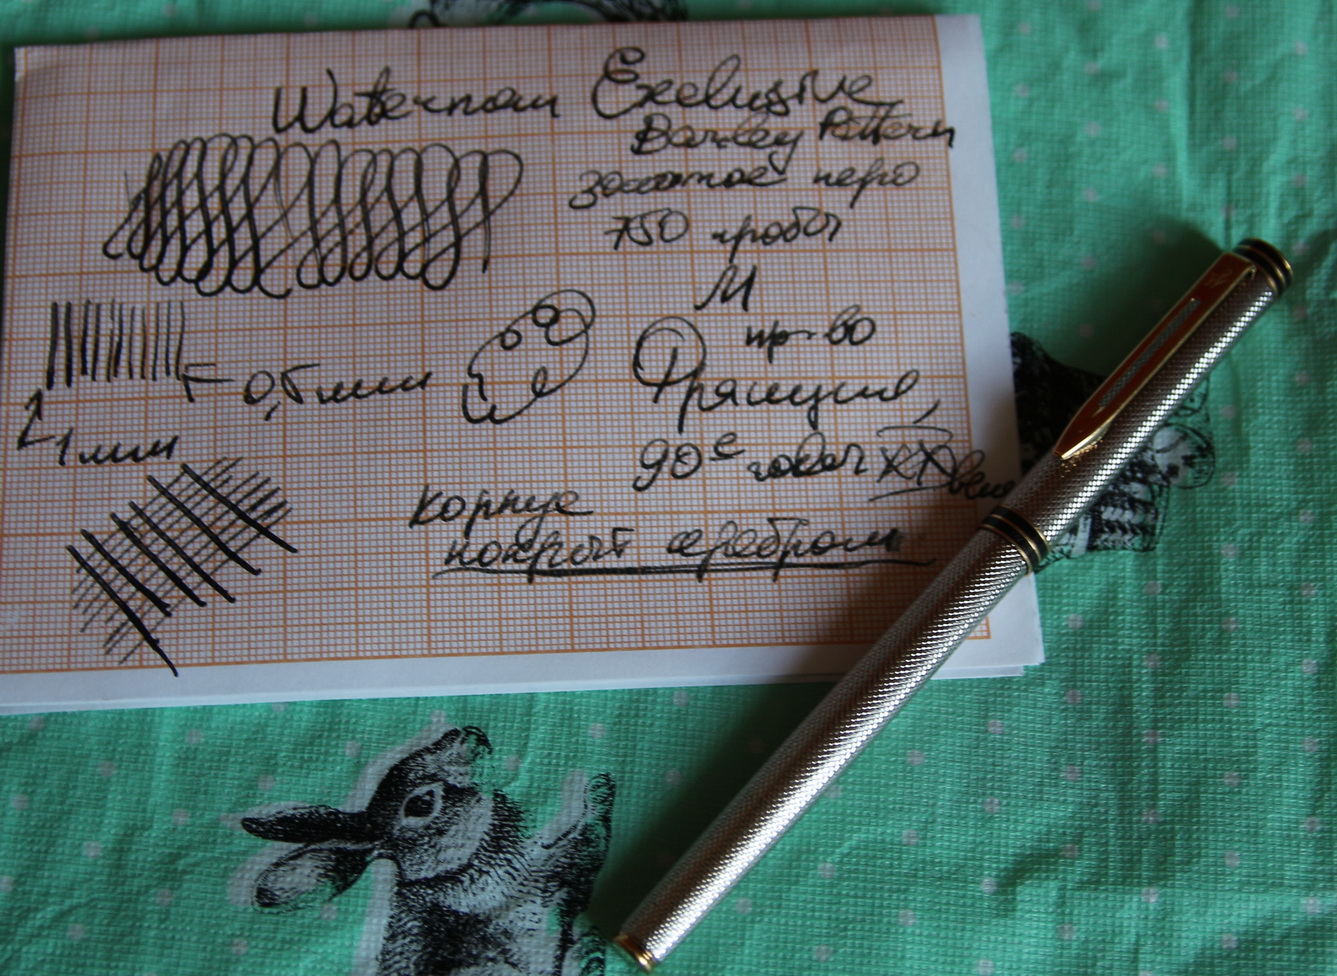 Waterman Exclusive
Barley Pattern
золотое перо
750 пробы
M
пр-во
Франция,
90е годы XX века
0,5 мм
1 мм
корпус
покрыт серебром